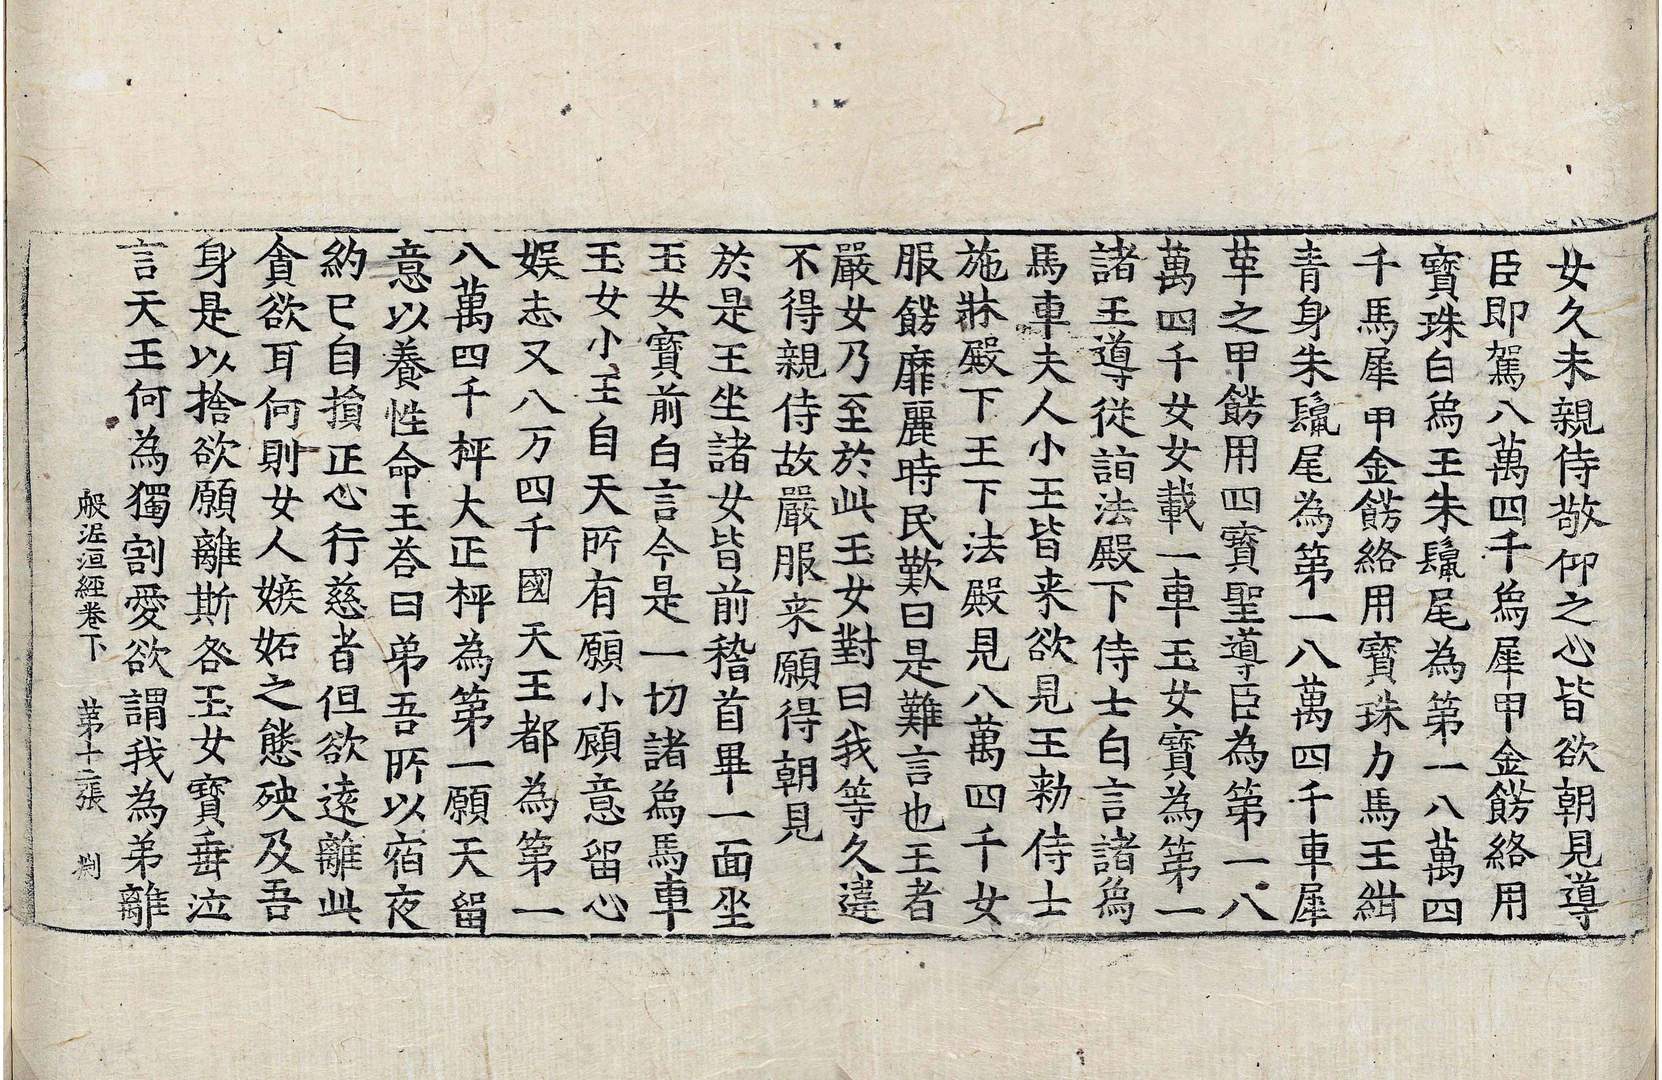 女久未親侍敬仰之心皆欲朝見導
臣即駕八萬四千爲犀甲金餝絡用
寶珠白爲王朱鬣尾為第一八萬四
千馬犀甲金餝絡用寶珠力馬王紺
青身朱鬣尾為第一八萬四千車犀
革之甲餝用四寶聖導臣為第一八
萬四千女女載一車玉女寶為第一
諸王導從詣法殿下侍士白言諸爲
馬車夫人小王皆来欲見王勑侍士
施牀殿下王下法殿見八萬四千女
服餝靡麗時民歎曰是難言也王者
嚴女乃至於此玉女對曰我等久違
不得親侍故嚴服来願得朝見
於是王坐諸女皆前稽首畢一面坐
玉女寶前白言今是一切諸爲馬車
玉女小王自天所有願小顧意留心
娛志又八万四千國天王都為第一
八萬四千枰大正枰為第一願天留
意以養性命王荅曰弟吾所以宿夜
約己自損正心行慈者但欲遠離此
貪欲耳何則女人嫉妬之態殃及吾
身是以捨欲願離斯咎玉女寶垂泣
言天王何為獨割愛欲謂我為弟離
般泥洹經卷下 第十二張